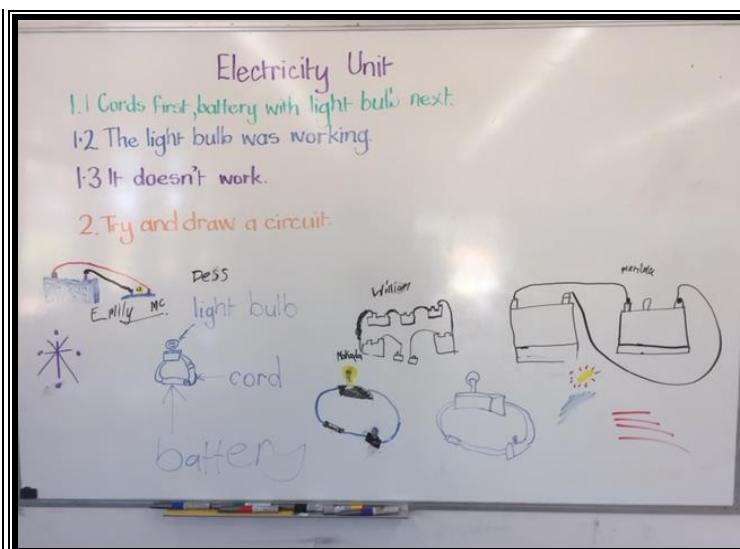 Electricity Unit
1.1 Cords first, battery with light bulb next.
1.2 The light bulb was working.
1.3 It doesn't work.
2. Try and draw a circuit.
Emily Mc
Dess
light bulb
cord
battery
William